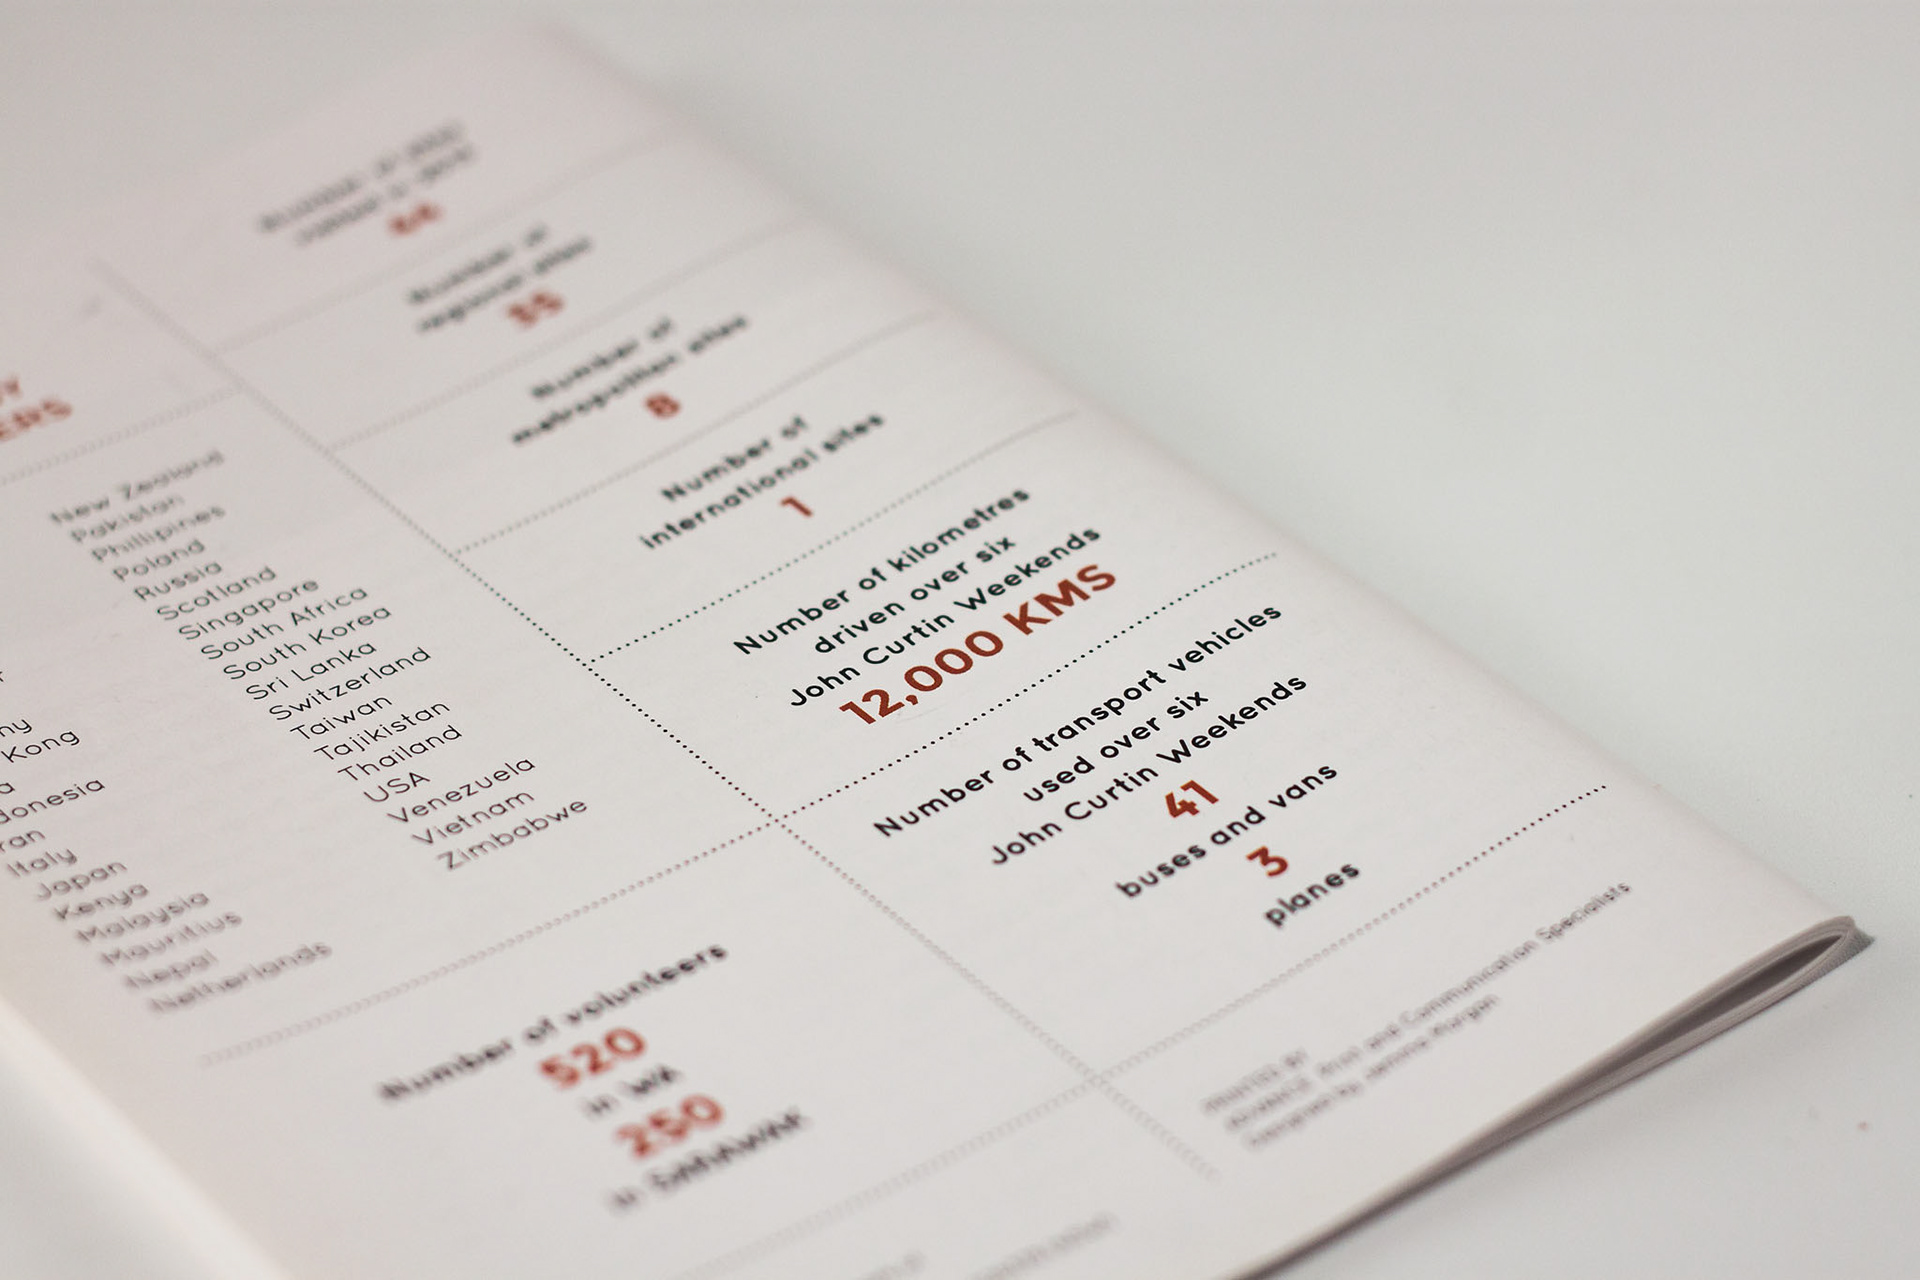 ERS
New Zealand
Pakistan
Phillipines
Poland
Russia
Scotland
Singapore
South Africa
South Korea
Sri Lanka
Switzerland
Taiwan
Tajikistan
Thailand
USA
Venezuela
Vietnam
Zimbabwe
ny
Kong
donesia
ran
Italy
Japan
Kenya
Malaysia
Mauritius
Nepal
Netherlands
Number of volunteers
520
in WA
250
in
Number of
regional sites
35
Number of
metropolitan sites
8
Number of
international sites
1
Number of kilometres
driven over six
John Curtin Weekends
12,000 KMS
Number of transport vehicles
used over six
John Curtin Weekends
41
buses and vans
3
planes
PRINTED BY
ADVANCE Print and Communication Specialists
Designed by Jemma Morgan